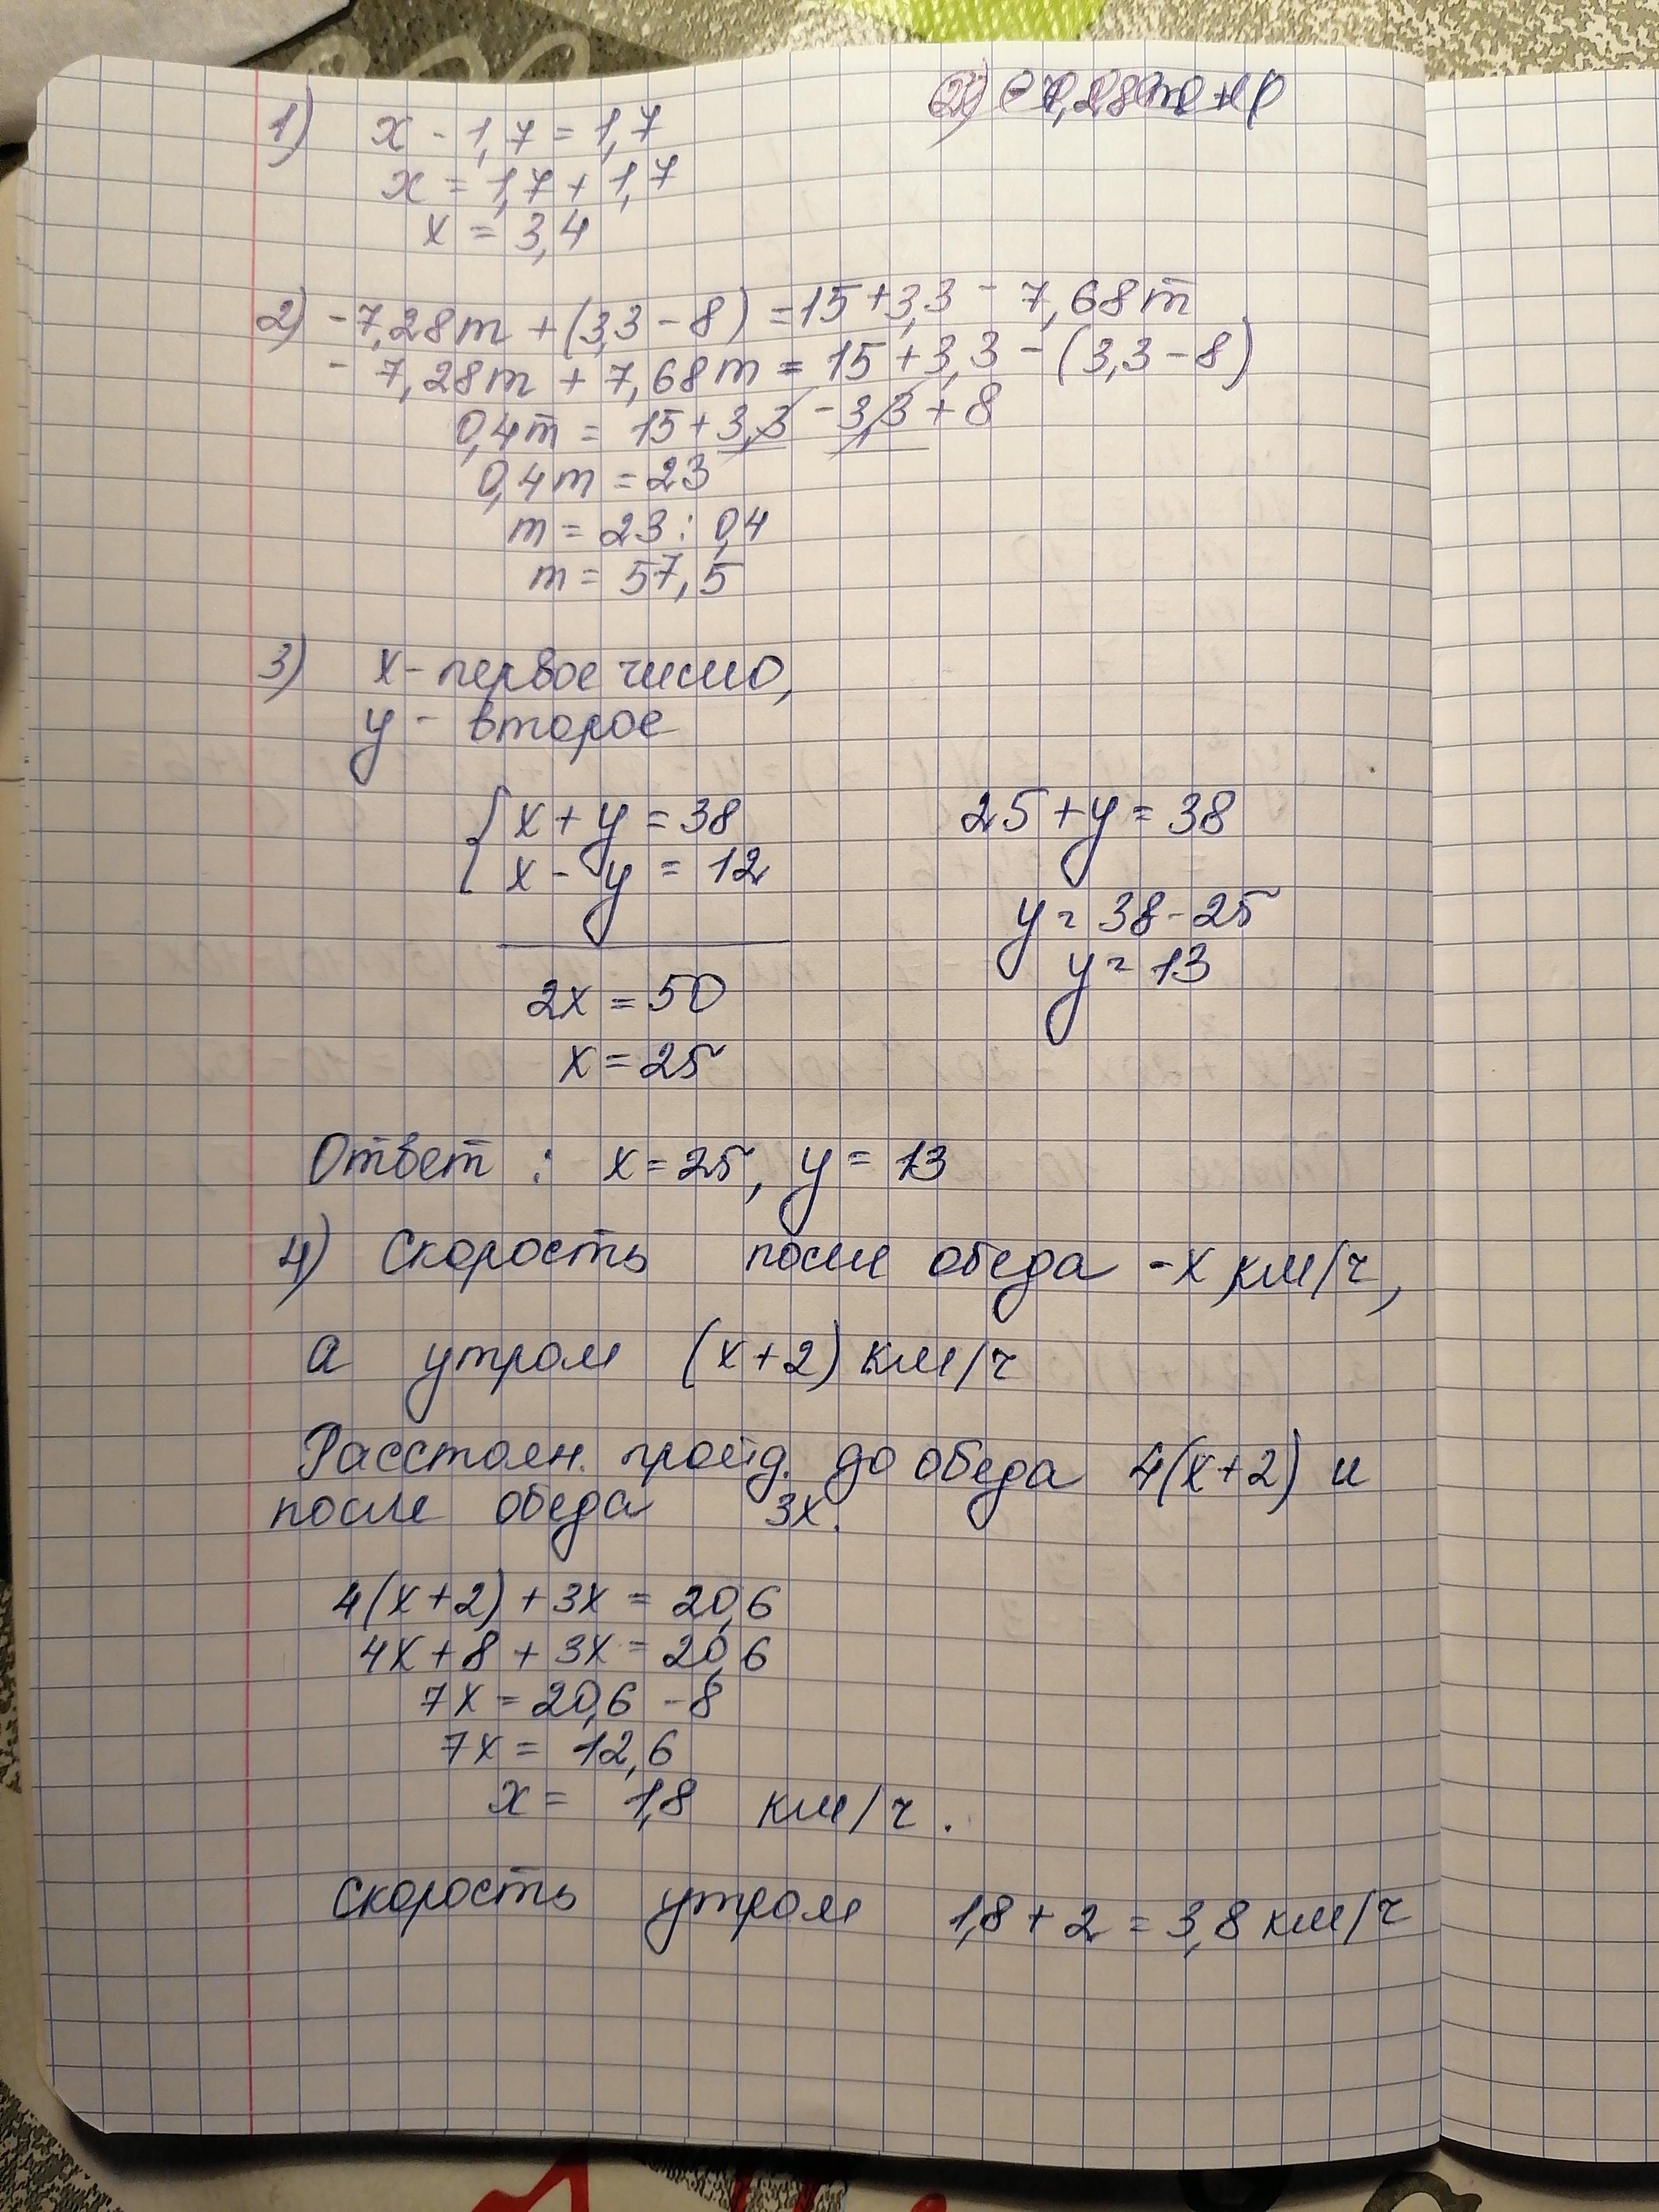 1) x - 1,7 = 1,7
x = 1,7 + 1,7
x = 3,4
2) -7,28m + (3,3 - 8) = 15 + 3,3 - 7,68m
- 7,28m + 7,68m = 15 + 3,3 - (3,3 - 8)
0,4m = 15 + 3,3 - 3,3 + 8
0,4m = 23
m = 23 : 0,4
m = 57,5
3) x - первое число,
y - второе
{ x + y = 38
x - y = 12
2x = 50
x = 25
25 + y = 38
y = 38 - 25
y = 13
Ответ : x = 25, y = 13
4) Скорость после обеда - x км/ч,
а утром (x+2) км/ч
Расстоян. пройд. до обеда 4(x+2) и
после обеда 3x.
4(x+2) + 3x = 20,6
4x + 8 + 3x = 20,6
7x = 20,6 - 8
7x = 12,6
x = 1,8 км/ч .
Скорость утром 1,8 + 2 = 3,8 км/ч